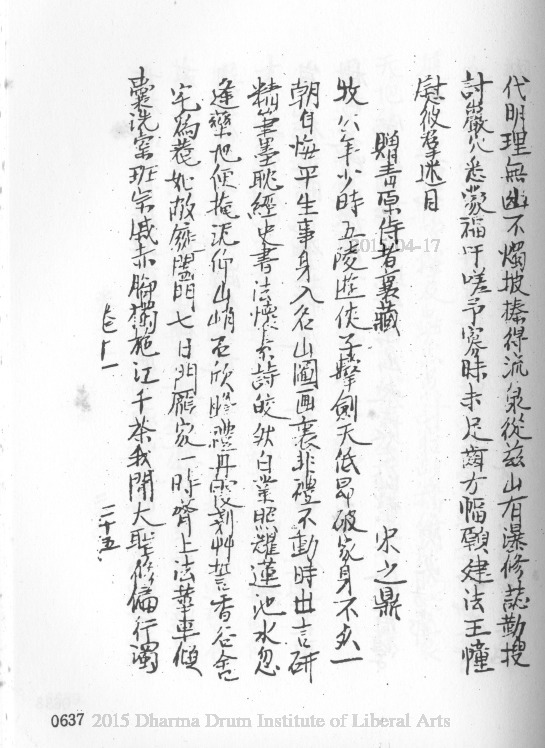 代明理無幽不燭披榛得流泉從茲山有瀑修誌勤搜
討巖穴悉蒙福吁嗟予寡昧未足齒方幅願建法王幢
慰彼羣迷目
贈青原侍者裏藏
宋之鼎
牧公年少時五陵遊俠子擊劍天低昂破家身不失一
朝自悔平生事身入名山圖画裏非禮不動時出言研
精筆墨耽經史書法懷素詩皎然白業照耀蓮池水忽
逢藥地便掩泥仰山峭石欣膜禮丹霞剗艸誓香谷舍
宅為菴如故鄉闔門七日門龐家一時齊上法華車傾
囊洗案班宗戚赤腳獨施江干茶我聞大聖修偏行濁
卷十一
二十五
2015-04-17
0637
2015 Dharma Drum Institute of Liberal Arts